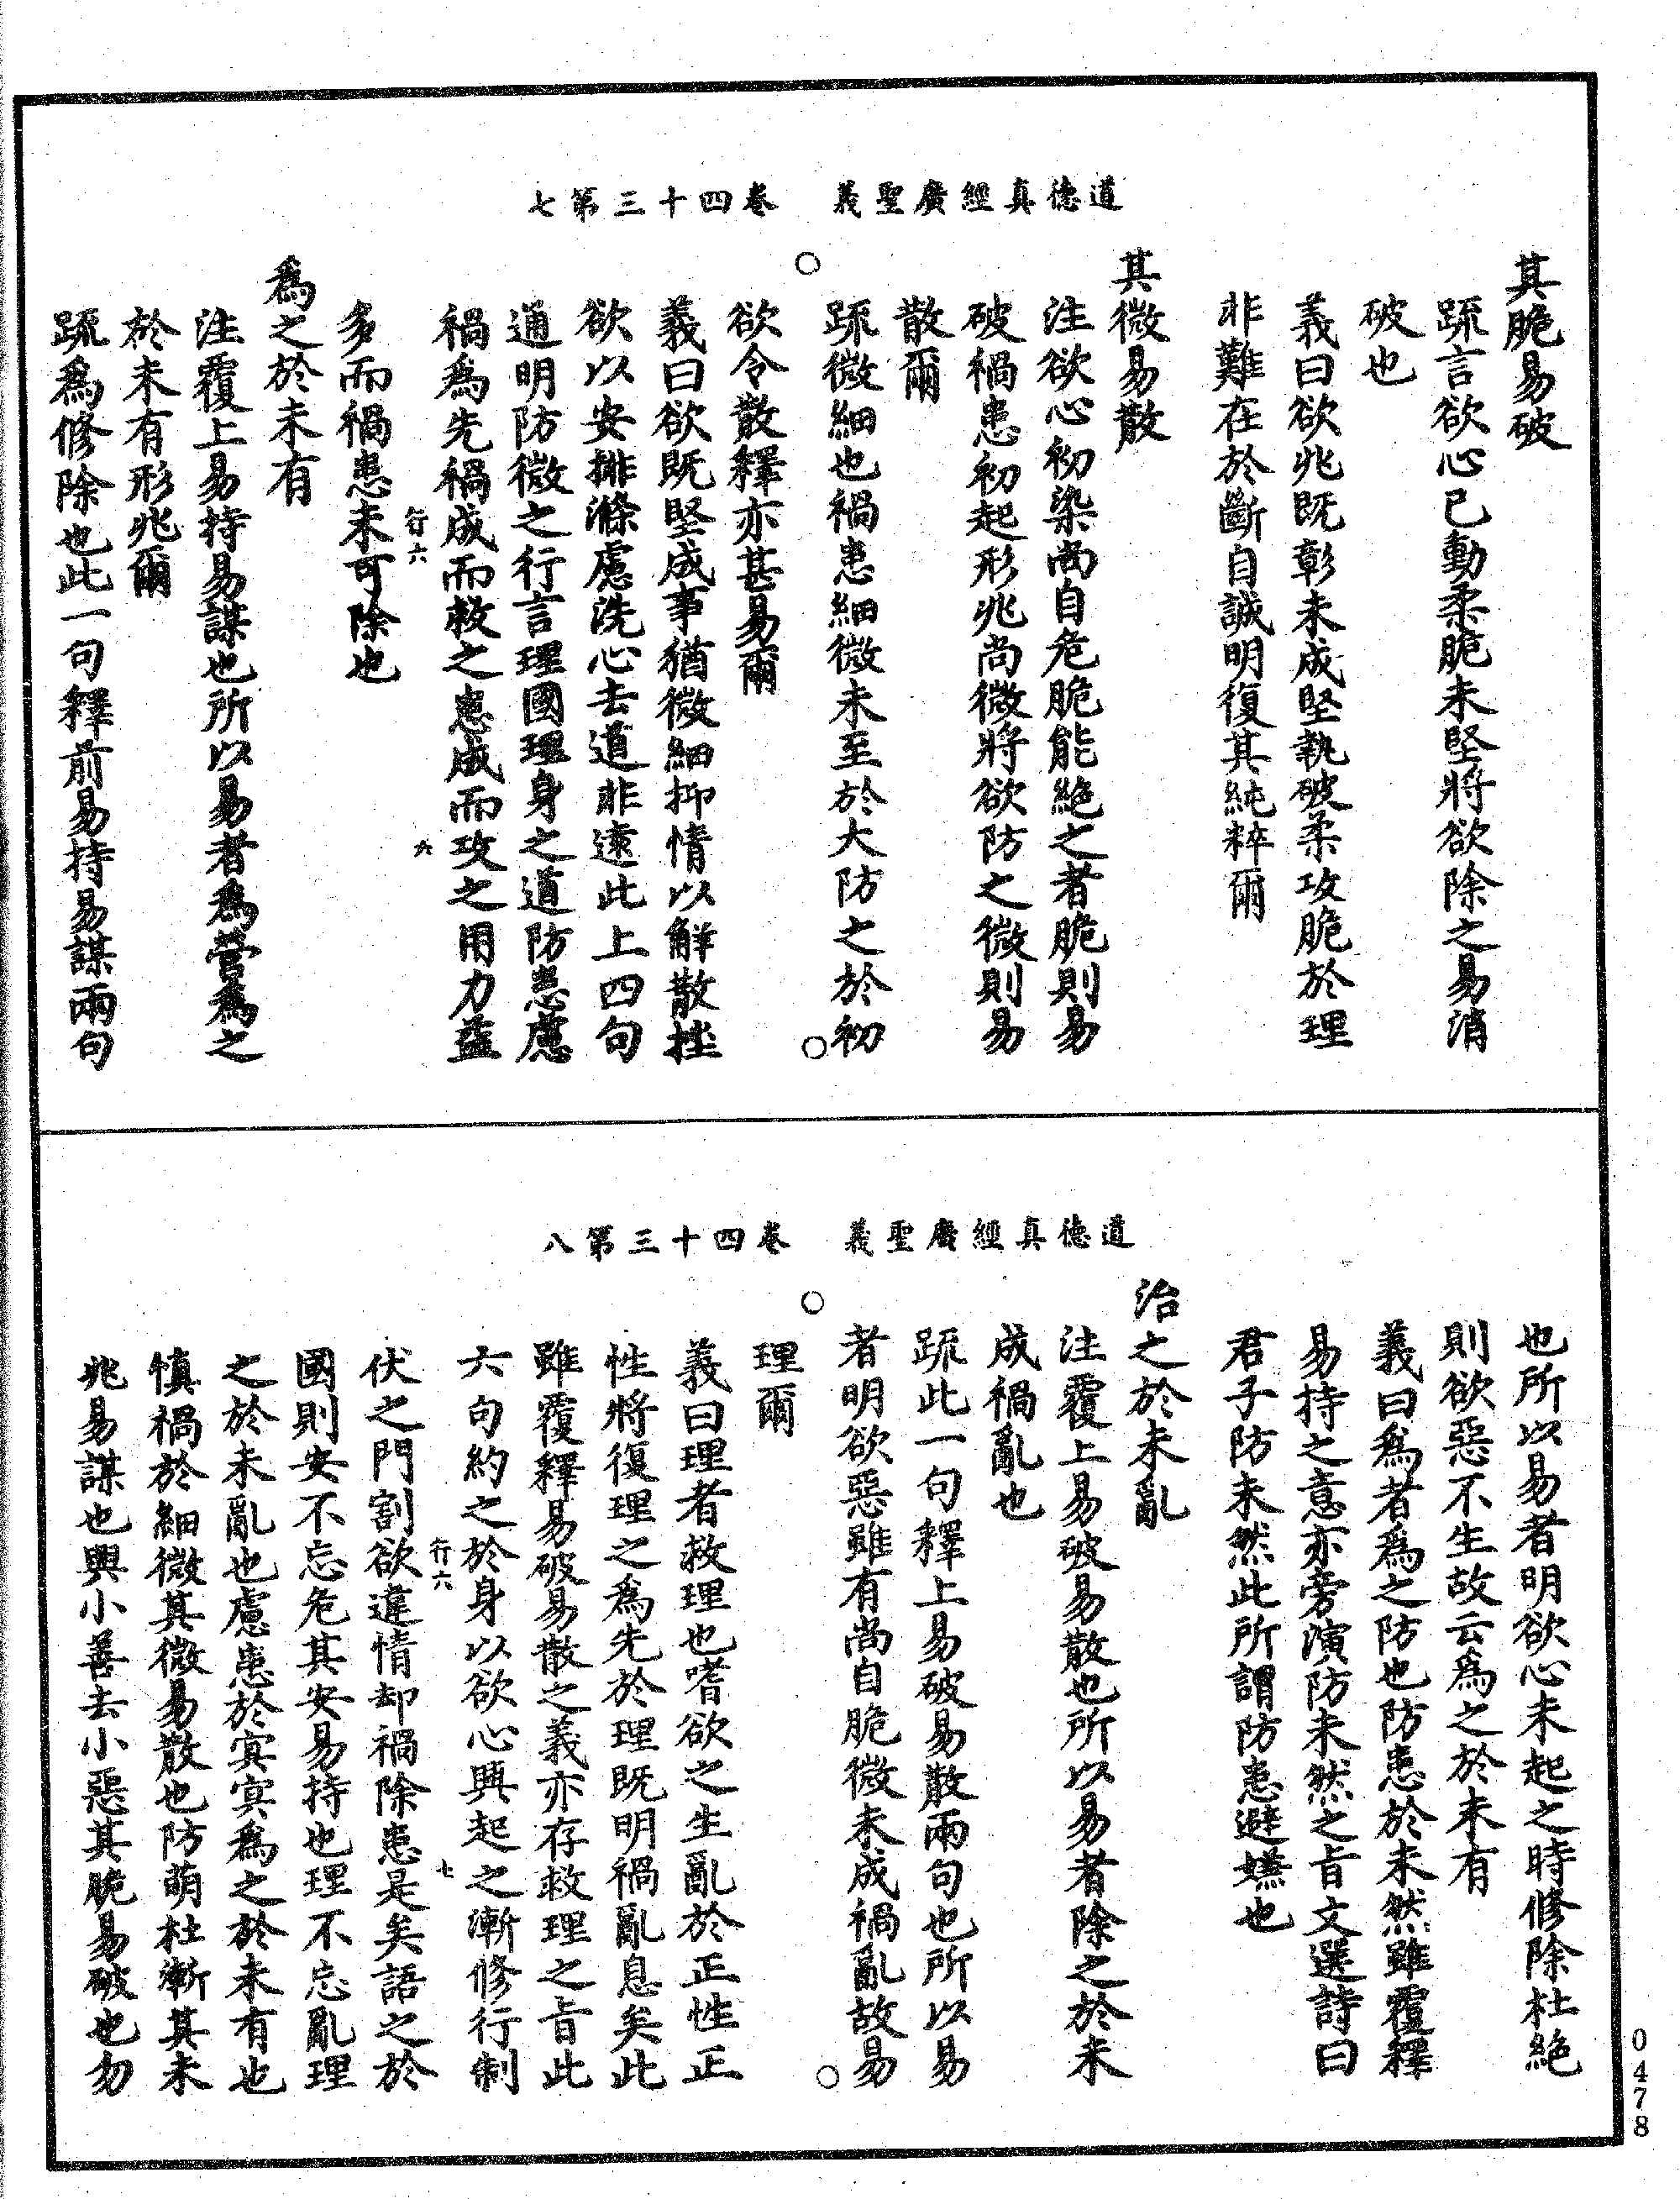 道德真經廣聖義　卷四十三第七
其脆易破
疏言欲心已動柔脆未堅將欲除之易消
破也
義曰欲兆既彰未成堅執破柔攻脆於理
非難在於斷自誠明復其純粹爾
其微易散
注欲心初染尚自危脆能絕之者脆則易
破禍患初起形兆尚微將欲防之微則易
散爾
疏微細也禍患細微未至於大防之於初
欲令散釋亦甚易爾
義曰欲既堅成事猶微細抑情以解散挫
欲以安排滌慮洗心去道非遠此上四句
通明防微之行言理國理身之道防患慮
禍為先禍成而救之患成而攻之用力益
行六　六
多而禍患未可除也
為之於未有
注覆上易持易謀也所以易者為營為之
於未有形兆爾
疏為修除也此一句釋前易持易謀兩句
道德真經廣聖義　卷四十三第八
也所以易者明欲心未起之時修除杜絕
則欲惡不生故云為之於未有
義曰為者為之防也防患於未然雖覆釋
易持之意亦旁演防未然之旨文選詩曰
君子防未然此所謂防患避嫌也
治之於未亂
注覆上易破易散也所以易者除之於未
成禍亂也
疏此一句釋上易破易散兩句也所以易
者明欲惡雖有尚自脆微未成禍亂故易
理爾
義曰理者救理也嗜欲之生亂於正性正
性將復理之為先於理既明禍亂息矣此
雖覆釋易破易散之義亦存救理之旨此
六句約之於身以欲心興起之漸修行制
行六　七
伏之門割欲違情却禍除患是矣語之於
國則安不忘危其安易持也理不忘亂理
之於未亂也慮患於冥冥為之於未有也
慎禍於細微其微易散也防萌杜漸其未
兆易謀也興小善去小惡其脆易破也勿
0478